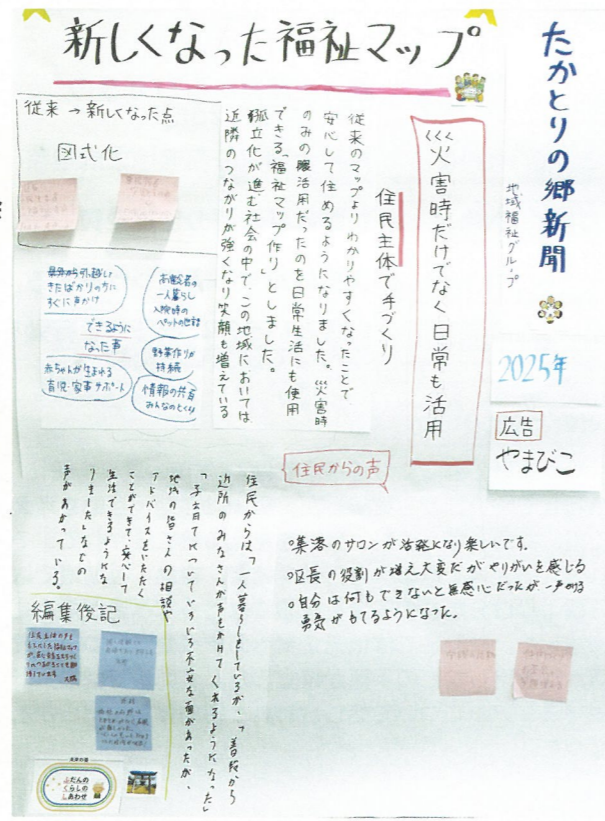 新しくなった福祉マップ
たかとりの郷新聞
地域福祉グループ
2025年
広告
やまびこ
災害時だけでなく日常も活用
住民主体で手づくり
従来のマップよりわかりやすくなったことで
安心して住めるようになりました。災害時
のみの活用だったのを日常生活にも使用
できる「福祉マップ作り」としました。
孤立化が進む社会の中で、この地域においては
近隣のつながりが強くなり笑顔も増えている
従来→新しくなった点
図式化
県外から引っ越して
きたばかりの方に
すぐに声かけ
高齢者の
一人暮らし
入院時の
ペットの世話
できるように
なった声
野菜作りが
持続
赤ちゃんが生まれる
育児・家事サポート
情報の共有
みんなのとくい
住民からの声
住民からは「一人暮らしをしているが、普段から
近所のみなさんが声をかけてくれるようになった」
「子育てについていろいろ不安な面があったが、
地域の皆さんの相談や
アドバイスをいただく
ことができて、安心して
生活できるようにな
りました」などの
声があがっている。
○集落のサロンが活発になり楽しいです。
○区長の役割が増え大変だがやりがいを感じる
○自分は何もできないと無感心だったが一声かける
勇気がもてるようになった。
編集後記
ふだんの
くらしの
しあわせ